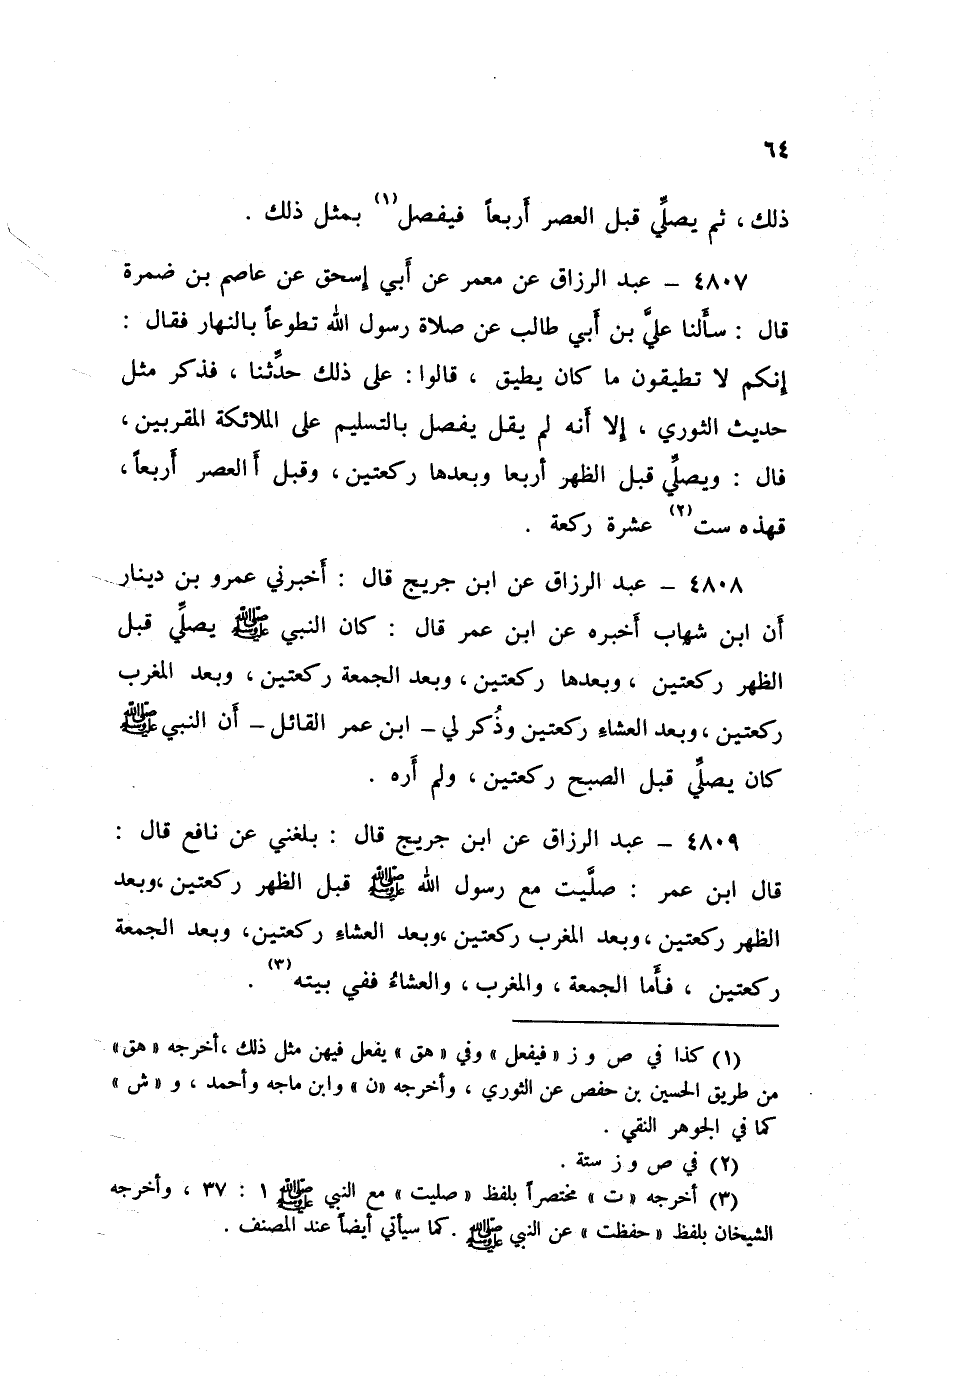 ٦٤
ذلك ، ثم يصلِّي قبل العصر أَربعاً فيفصل(١) بمثل ذلك .
٤٨٠٧ – عبد الرزاق عن معمر عن أَبي إسحق عن عاصم بن ضمرة
قال : سأَلنا عليَّ بن أَبي طالب عن صلاة رسول الله تطوعاً بالنهار فقال :
إنكم لا تطيقون ما كان يطيق ، قالوا : على ذلك حدِّثنا ، فذكر مثل
حديث الثوري ، إلا أَنه لم يقل يفصل بالتسليم على الملائكة المقربين ،
فال : ويصلِّي قبل الظهر أربعا وبعدها ركعتين ، وقبل أَ العصر أَربعاً ،
قهذه ست(٢) عشرة ركعة .
٤٨٠٨ – عبد الرزاق عن ابن جريج قال : أَخبرني عمرو بن دينار
أَن ابن شهاب أَخبره عن ابن عمر قال : كان النبي ﷺ يصلِّي قبل
الظهر ركعتين ، وبعدها ركعتين ، وبعد الجمعة ركعتين ، وبعد المغرب
ركعتين ، وبعد العشاءِ ركعتين وذُكر لي – ابن عمر القائل – أَن النبي ﷺ
كان يصلِّي قبل الصبح ركعتين ، ولم أَره .
٤٨٠٩ – عبد الرزاق عن ابن جريج قال : بلغني عن نافع قال :
قال ابن عمر : صلَّيت مع رسول الله ﷺ قبل الظهر ركعتين ،وبعد
الظهر ركعتين ، وبعد المغرب ركعتين ،وبعد العشاءِ ركعتين، وبعد الجمعة
ركعتين ، فأَما الجمعة ، والمغرب ، والعشاءُ ففي بيته(٣) .
(١) كذا في ص و ز « فيفعل » وفي « هق » يفعل فيهن مثل ذلك ،أخرجه « هق»
من طريق الحسين بن حفص عن الثوري ، وأخرجه «ن » وابن ماجه وأحمد ، و « ش »
كما في الجوهر النقي .
(٢) في ص و ز ستة .
(٣) أخرجه « ت » مختصراً بلفظ « صليت » مع النبي ﷺ ١ : ٣٧ ، وأخرجه
الشيخان بلفظ « حفظت » عن النبي ﷺ .كما سيأتي أيضاً عند المصنف .